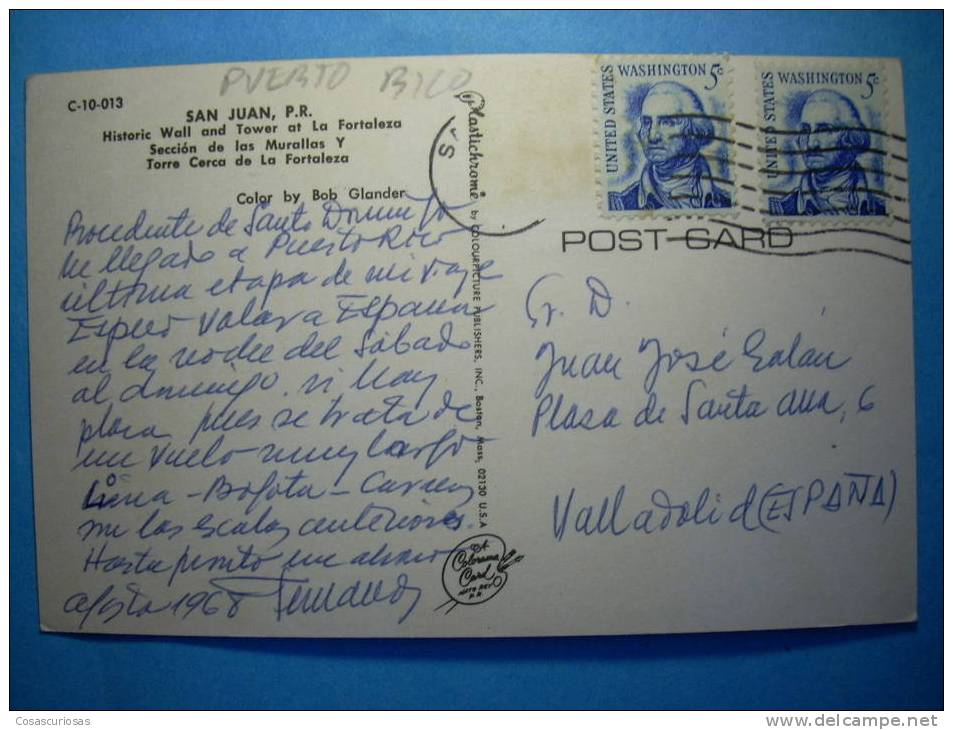 PUERTO RICO
C-10-013
SAN JUAN, P.R.
Historic Wall and Tower at La Fortaleza
Sección de las Murallas Y
Torre Cerca de La Fortaleza
Color by Bob Glander
Procedente de Santo Domingo
he llegado a Puerto Rico
ultima etapa de mi viaje
Espero volar a España
en la noche del sábado
al domingo, si hay
plaza pues se trata de
un vuelo muy largo
Lima - Bogota - Caracas
son las escalas anteriores.
Hasta pronto un abrazo
agosto 1968 Fernando
Plastichrome by COLOURPICTURE PUBLISHERS, INC., Boston, Mass. 02130 U.S.A
A
Colorama
Card
HATO REY
P.R.
UNITED STATES WASHINGTON 5c
UNITED STATES WASHINGTON 5c
POST CARD
Sr. D.
Juan José Galán
Plaza de Santa Ana, 6
Valladolid (ESPAÑA)
Cosascuriosas
www.delcampe.net